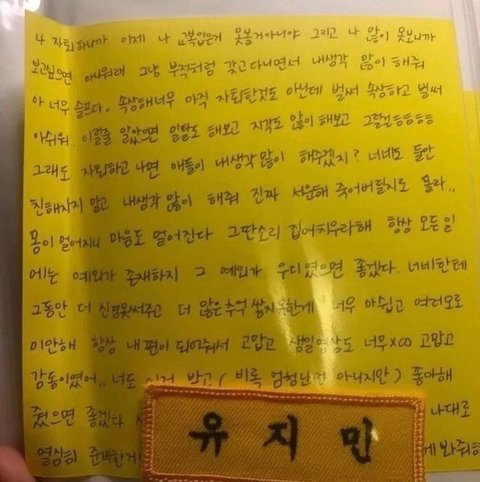 나 자퇴하니까 이제 나 교복입은거 못볼거아니야 그리고 나 많이 못보니까
보고싶으면 아쉬워해 그냥 부적처럼 갖고다니면서 내생각 많이 해줘
아 너무 슬프다.. 속상해너무 아직 자퇴한것도 아닌데 벌써 속상하고 벌써
아쉬워 이럴줄 알았으면 일탈도 해보고 지각도 많이 해보고 그럴걸ㅎㅎㅎㅎ
그래도 자퇴하고 나면 애들이 내생각 많이 해주겠지? 너네도 둘만
친해지지 말고 내생각 많이 해줘 진짜 서운해 죽어버릴지도 몰라..
몸이 멀어지니 마음도 멀어진다 그딴소리 집어치우라해 항상 모든일
에는 예외가 존재하지 그 예외가 우디였으면 좋겠다. 너네한테
그동안 더 신경못써주고 더 많은추억 쌓지못한게 너무 아쉽고 여러모로
미안해 항상 내편이 되어줘서 고맙고 생일영상도 너무x∞ 고맙고
감동이였어.. 너도 이거 받고 (비록 엄청난건 아니지만) 좋아해
줬으면 좋겠다 나대로
열심히 준비한거 봐줘
유지민